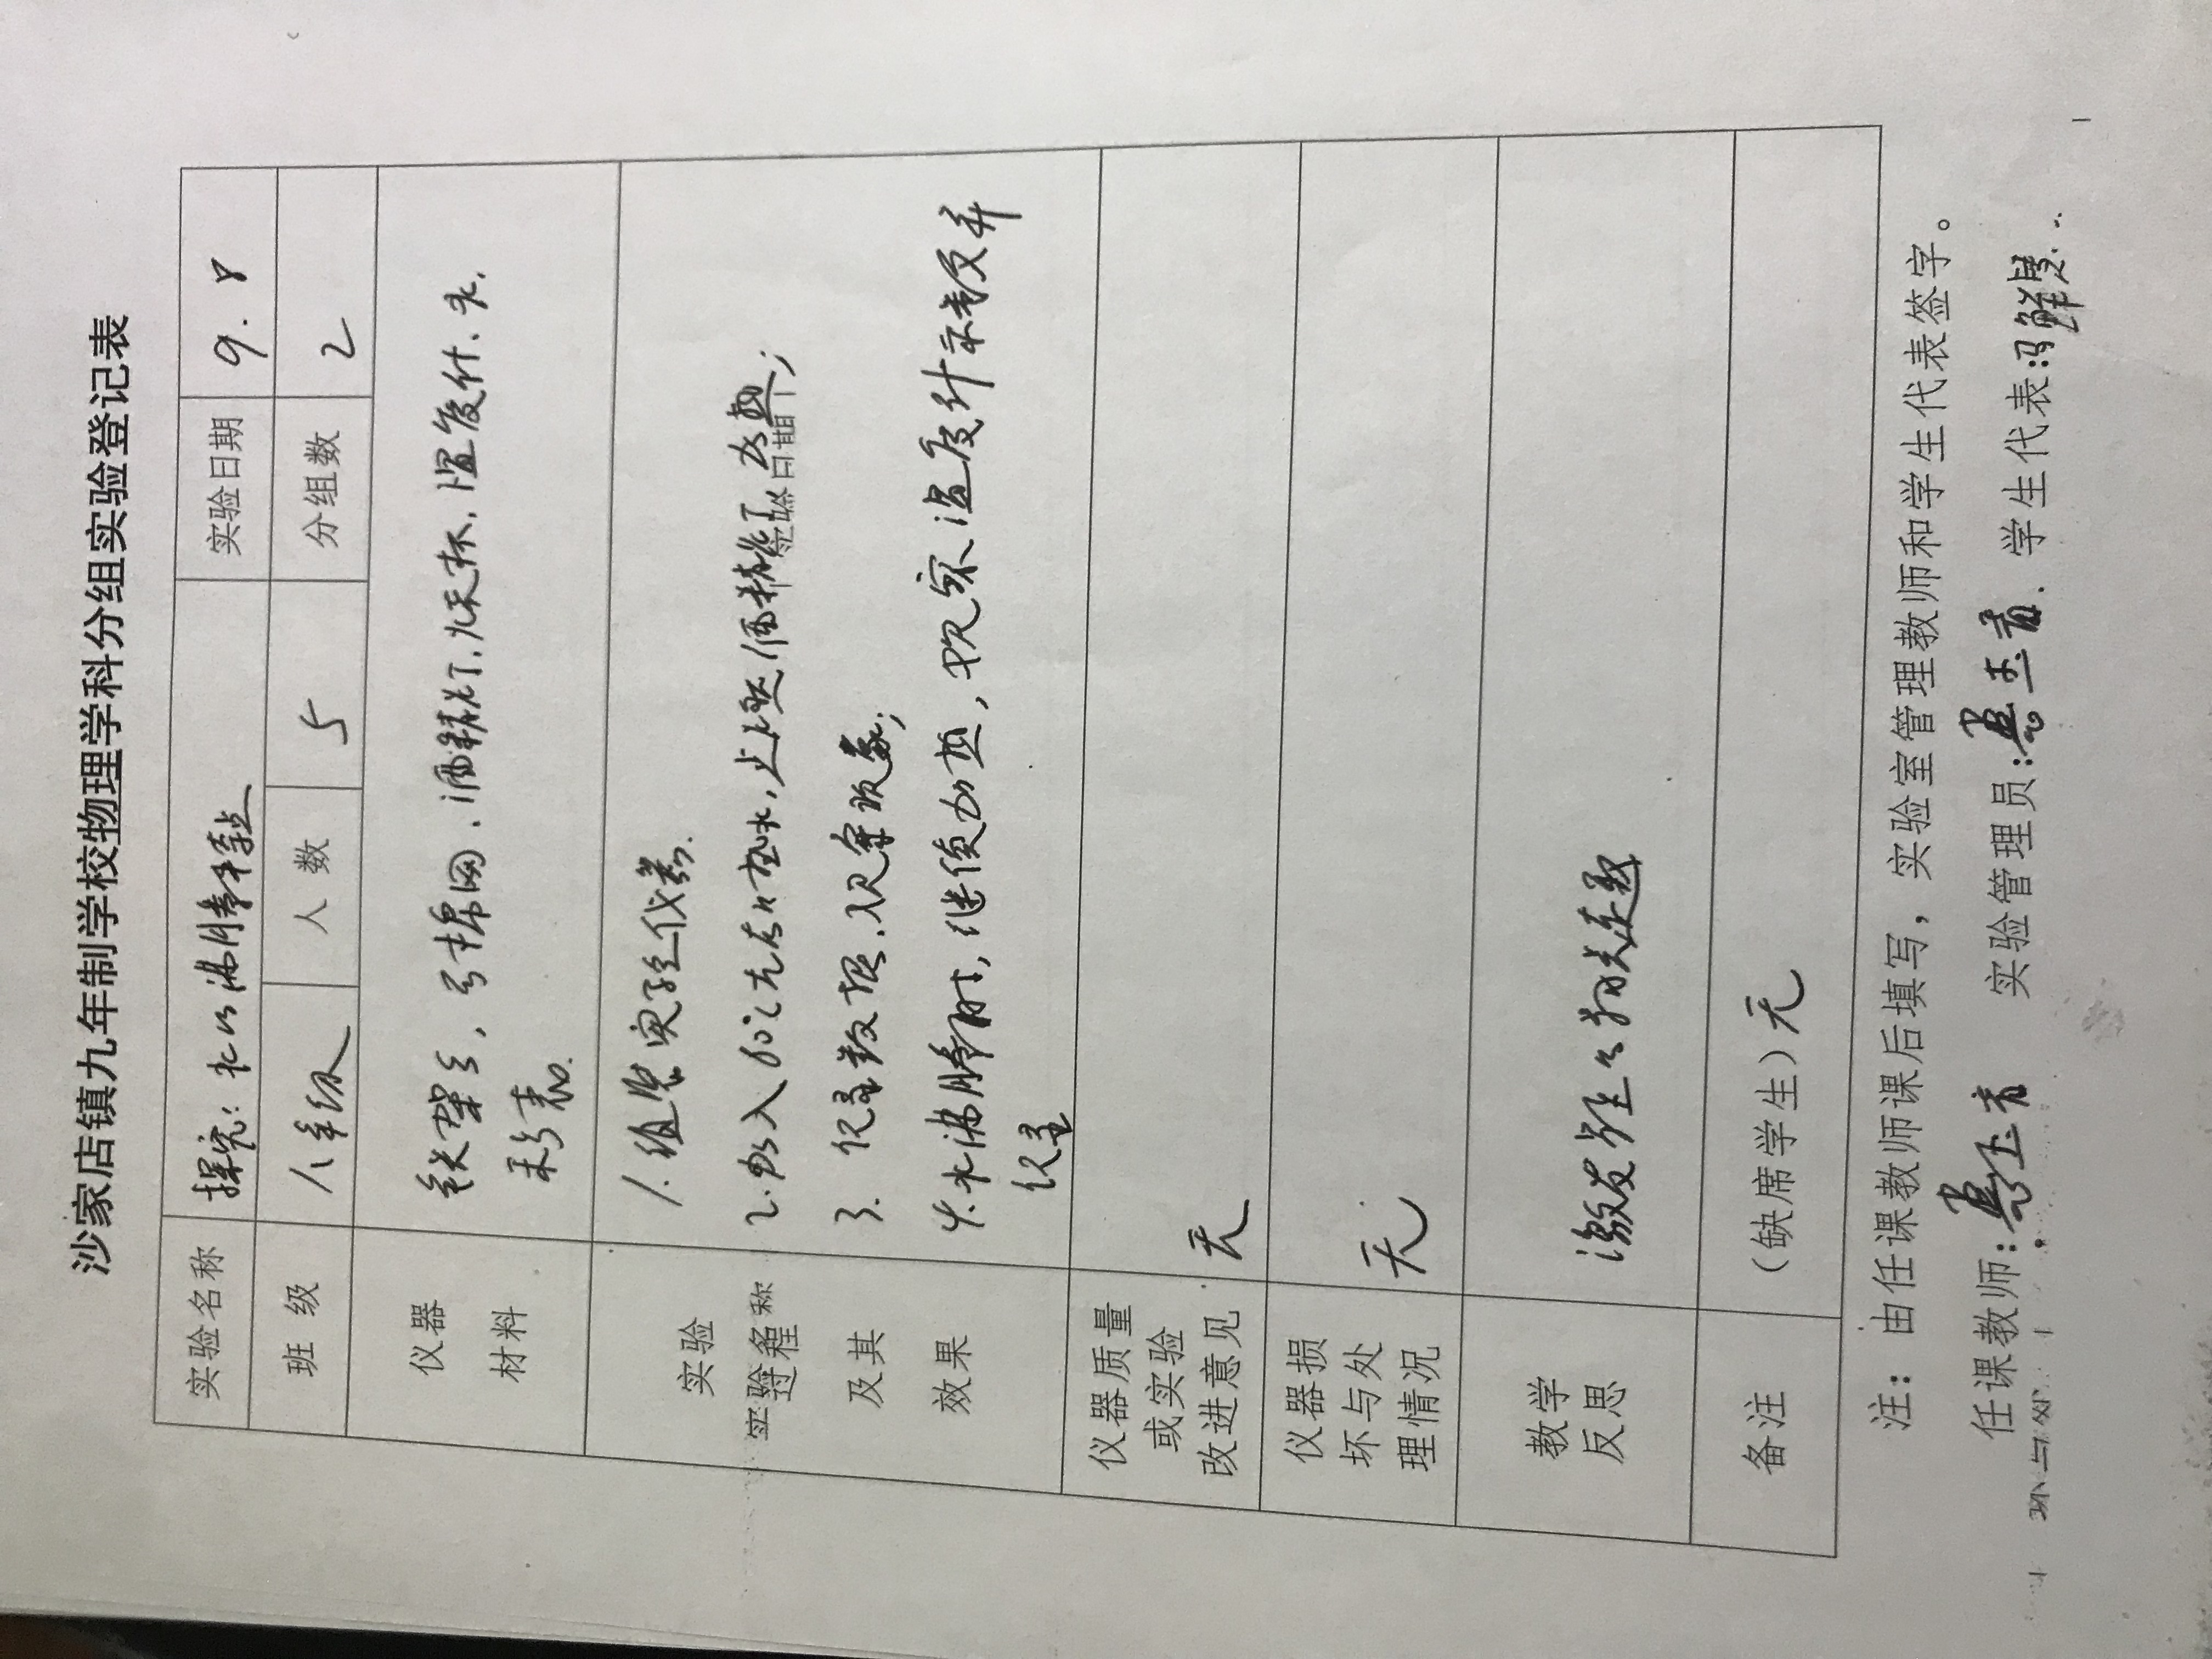 沙家店镇九年制学校物理学科分组实验登记表
实验名称 探究:水的沸腾特点 实验日期 9.8
班 级 八年级 人 数 5 分组数 2
仪器 铁架台,石棉网、酒精灯、烧杯、温度计、水、
材料 秒表.
实验 1.组装实验仪器.
过程 2.倒入60℃左右的热水,点燃酒精灯加热;
及其 3.记录数据、观察现象;
效果 4.水沸腾时,继续加热,观察温度计示数并
记录
仪器质量
或实验 无
改进意见
仪器损
坏与处 无
理情况
教学 激发学生的相关兴趣
反思
备注 (缺席学生)无
注:由任课教师课后填写,实验室管理教师和学生代表签字。
任课教师: 实验管理员: 学生代表:
坏与处